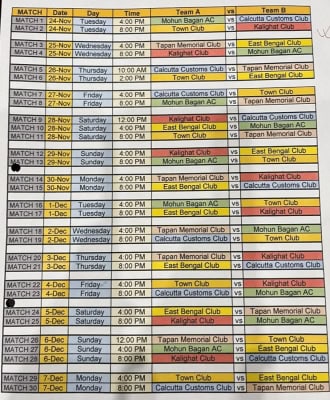 MATCH Date Day Time Team A vs Team B
MATCH 1 24-Nov Tuesday 4:00 PM Mohun Bagan AC vs Calcutta Customs Club
MATCH 2 24-Nov Tuesday 8:00 PM Town Club vs Kalighat Club
MATCH 3 25-Nov Wednesday 4:00 PM Tapan Memorial Club vs East Bengal Club
MATCH 4 25-Nov Wednesday 8:00 PM Kalighat Club vs Mohun Bagan AC
MATCH 5 26-Nov Thursday 10:00 AM Calcutta Customs Club vs Tapan Memorial Club
MATCH 6 26-Nov Thursday 2:00 PM Town Club vs East Bengal Club
MATCH 7 27-Nov Friday 4:00 PM Calcutta Customs Club vs Town Club
MATCH 8 27-Nov Friday 8:00 PM Mohun Bagan AC vs Tapan Memorial Club
MATCH 9 28-Nov Saturday 12:00 PM Kalighat Club vs Calcutta Customs Club
MATCH 10 28-Nov Saturday 4:00 PM East Bengal Club vs Mohun Bagan AC
MATCH 11 28-Nov Saturday 8:00 PM Town Club vs Tapan Memorial Club
MATCH 12 29-Nov Sunday 4:00 PM Kalighat Club vs East Bengal Club
MATCH 13 29-Nov Sunday 8:00 PM Mohun Bagan AC vs Town Club
MATCH 14 30-Nov Monday 4:00 PM Tapan Memorial Club vs Kalighat Club
MATCH 15 30-Nov Monday 8:00 PM East Bengal Club vs Calcutta Customs Club
MATCH 16 1-Dec Tuesday 4:00 PM Town Club vs Mohun Bagan AC
MATCH 17 1-Dec Tuesday 8:00 PM East Bengal Club vs Kalighat Club
MATCH 18 2-Dec Wednesday 4:00 PM Tapan Memorial Club vs Mohun Bagan AC
MATCH 19 2-Dec Wednesday 8:00 PM Calcutta Customs Club vs Town Club
MATCH 20 3-Dec Thursday 4:00 PM Tapan Memorial Club vs Kalighat Club
MATCH 21 3-Dec Thursday 8:00 PM East Bengal Club vs Calcutta Customs Club
MATCH 22 4-Dec Friday 4:00 PM Town Club vs Kalighat Club
MATCH 23 4-Dec Friday 8:00 PM Calcutta Customs Club vs Mohun Bagan AC
MATCH 24 5-Dec Saturday 4:00 PM East Bengal Club vs Tapan Memorial Club
MATCH 25 5-Dec Saturday 8:00 PM Kalighat Club vs Mohun Bagan AC
MATCH 26 6-Dec Sunday 12:00 PM Tapan Memorial Club vs Town Club
MATCH 27 6-Dec Sunday 4:00 PM Mohun Bagan AC vs East Bengal Club
MATCH 28 6-Dec Sunday 8:00 PM Kalighat Club vs Calcutta Customs Club
MATCH 29 7-Dec Monday 4:00 PM Town Club vs East Bengal Club
MATCH 30 7-Dec Monday 8:00 PM Calcutta Customs Club vs Tapan Memorial Club